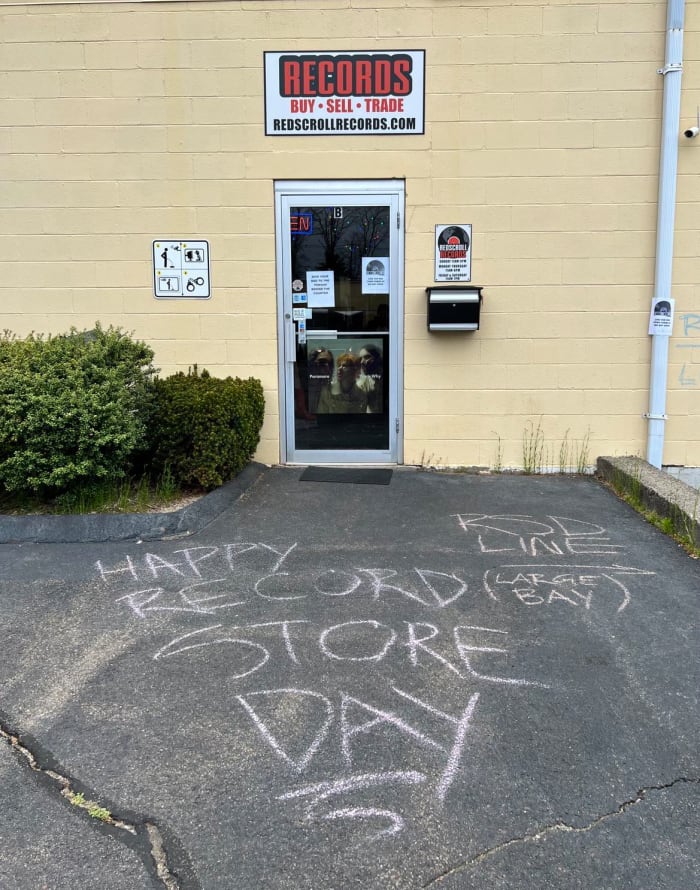 RECORDS
BUY • SELL • TRADE
REDSCROLLRECORDS.COM
B
EN
REDSCROLL
RECORDS
Paramore
Why
RSD
LINE
(LARGE
BAY)
HAPPY
RECORD
STORE
DAY